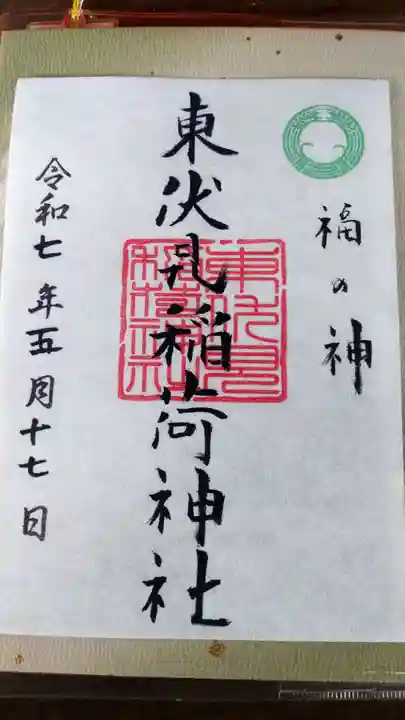 福の神
東伏見稲荷神社
令和七年五月十七日
東伏見
稲荷神社